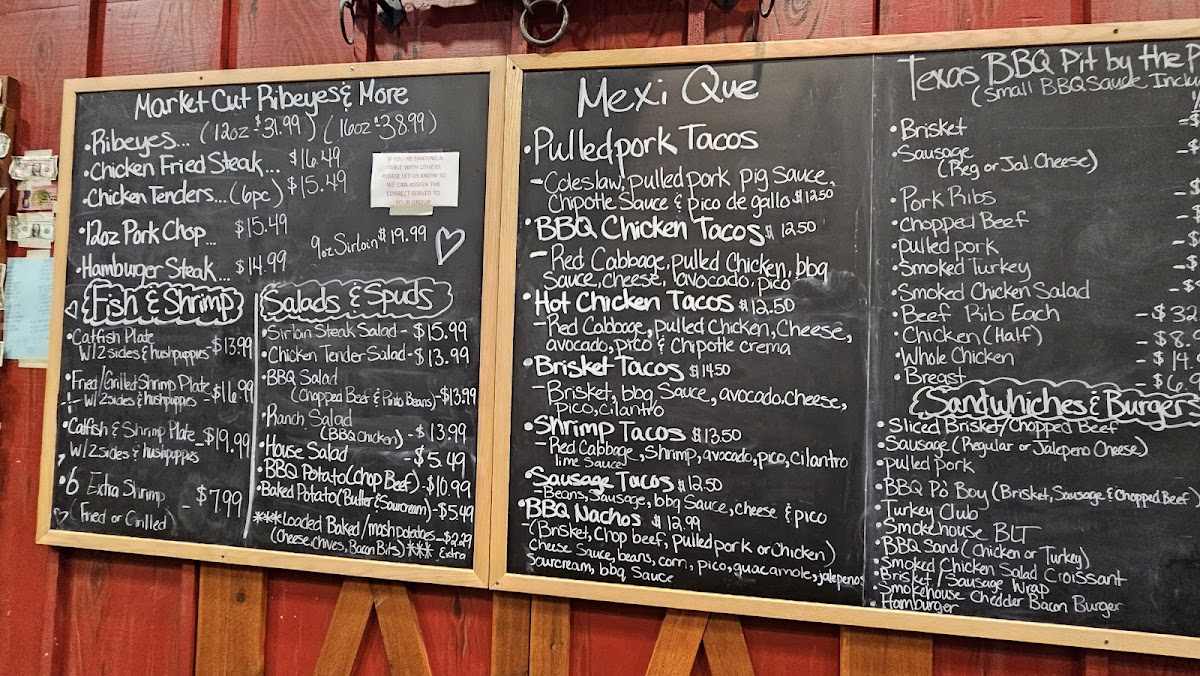 Market Cut Ribeyes & More
•Ribeyes... (12oz - $31.99) (16oz $38.99)
•Chicken Fried Steak... $16.49
•Chicken Tenders...(6pc) $15.49
•12oz Pork Chop... $15.49
9oz Sirloin $19.99
•Hamburger Steak... $14.99
IF YOU'RE SHARING A
TABLE WITH OTHERS,
PLEASE LET US KNOW SO
WE CAN ASSIGN THE
CORRECT SERVER TO
YOUR GROUP
Fish & Shrimp
•Catfish Plate
W/2 sides & hushpuppies -$13.99
•Fried/Grilled Shrimp Plate
W/2 sides & hushpuppies -$16.99
•Catfish & Shrimp Plate
W/2 sides & hushpuppies -$19.99
•6 Extra Shrimp
(Fried or Grilled) - $7.99
Salads & Spuds
•Sirloin Steak Salad - $15.99
•Chicken Tender Salad - $13.99
•BBQ Salad
(Chopped Beef & Pinto Beans) -$13.99
•Ranch Salad
(BBQ Chicken) - $13.99
•House Salad - $5.49
•BBQ Potato (Chop Beef) -$10.99
•Baked Potato (Butter & Sourcream) -$5.49
***Loaded Baked/mash potatoes -$2.29
(Cheese, chives, Bacon Bits) *** Extra
Mexi Que
•Pulled pork Tacos
- Coleslaw, pulled pork pig sauce,
Chipotle Sauce & pico de gallo $12.50
•BBQ Chicken Tacos $12.50
- Red Cabbage, pulled Chicken, bbq
Sauce, cheese, avocado, pico
•Hot Chicken Tacos $12.50
- Red Cabbage, pulled Chicken, Cheese,
avocado, pico & Chipotle crema
•Brisket Tacos $14.50
- Brisket, bbq Sauce, avocado, cheese,
pico, cilantro
•Shrimp Tacos $13.50
- Red Cabbage, Shrimp, avocado, pico, cilantro
lime Sauce
•Sausage Tacos $12.50
- Beans, Sausage, bbq Sauce, cheese & pico
•BBQ Nachos $12.99
-(Brisket, Chop beef, Pulled pork or Chicken)
Cheese Sauce, beans, corn, pico, guacamole, jalepenos
Sourcream, bbq Sauce
Texas BBQ Pit by the
(Small BBQ Sauce
•Brisket -$
•Sausage -$
(Reg or Jal. Cheese)
•Pork Ribs
•Chopped Beef
•pulled pork
•Smoked Turkey
•Smoked Chicken Salad
•Beef Rib Each - $32
•Chicken (Half) - $8.
•Whole Chicken - $14
•Breast - $6.9
Sandwhiches & Burgers
•Sliced Brisket/Chopped Beef
•Sausage (Regular or Jalepeno Cheese)
•pulled Pork
•BBQ Po' Boy (Brisket, Sausage & Chopped Beef
•Turkey Club
•Smokehouse BLT
•BBQ Sand (Chicken or Turkey)
•Smoked Chicken Salad Croissant
•Brisket/Sausage Wrap
•Smokehouse Chedder Bacon Burger
•Hamburger